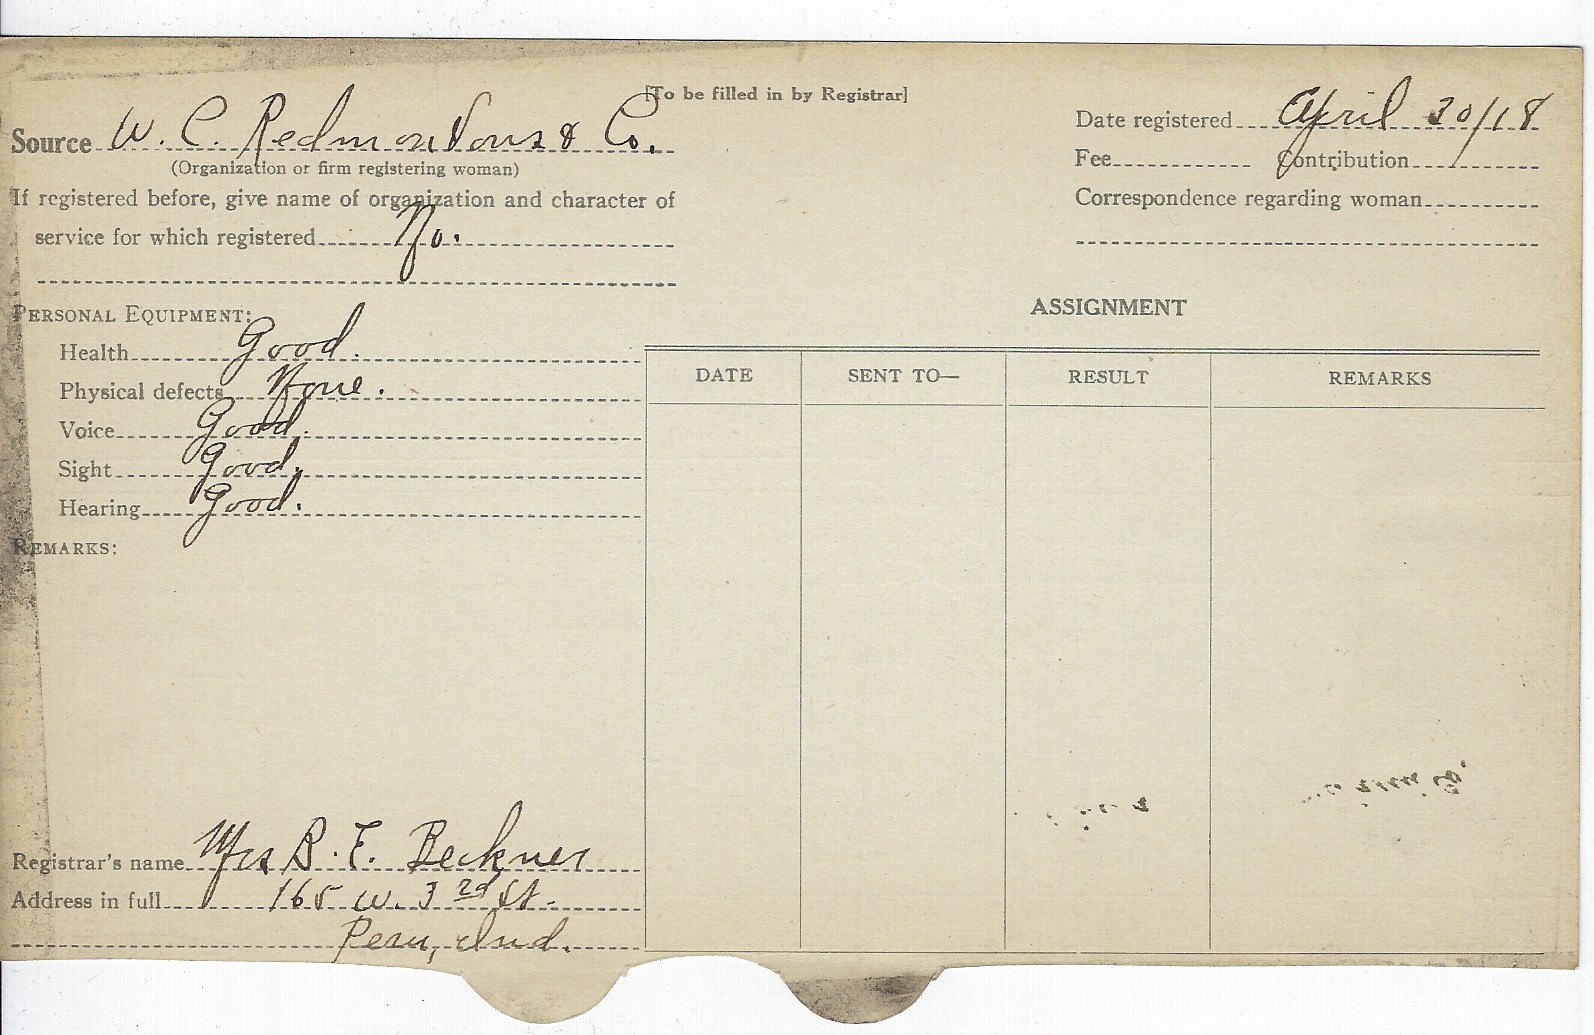 [To be filled in by Registrar]
Source W. C. Redmon Sons & Co.
(Organization or firm registering woman)
If registered before, give name of organization and character of
service for which registered No.
Date registered April 30/18
Fee Contribution
Correspondence regarding woman
PERSONAL EQUIPMENT:
Health Good.
Physical defects None.
Voice Good.
Sight Good.
Hearing Good.
REMARKS:
Registrar's name Mrs B. F. Beckner
Address in full 165 W. 3rd St.
Peru, Ind.
ASSIGNMENT
DATE SENT TO— RESULT REMARKS